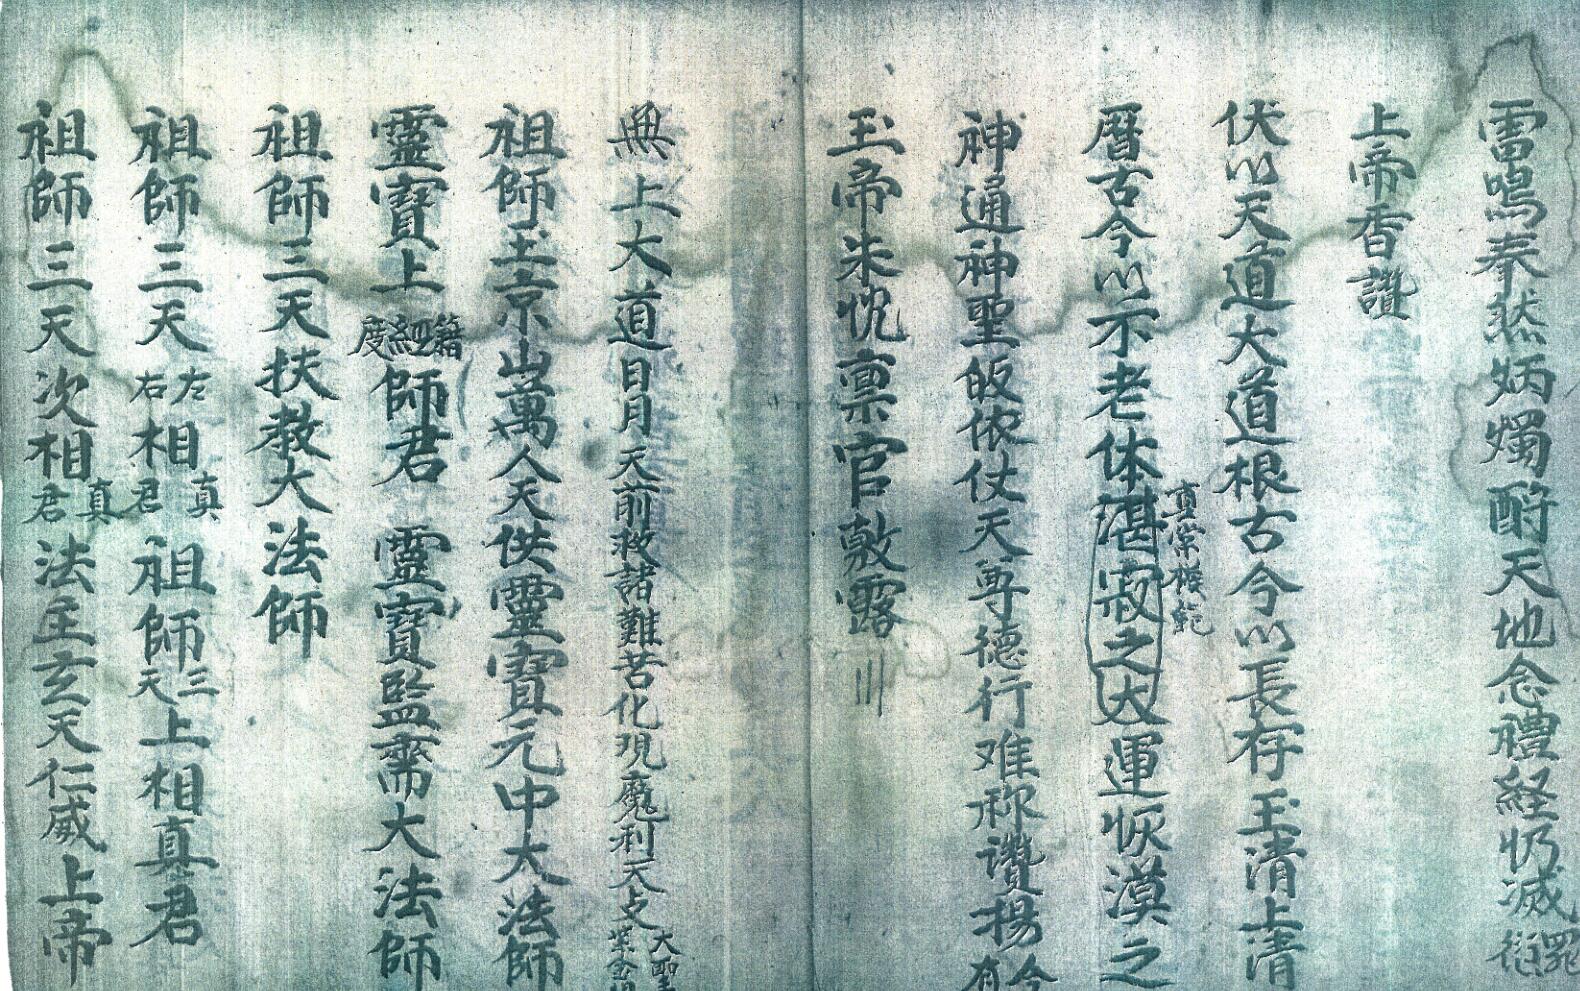 雷鳴奉然炳燭酹天地念禮経仍滅罪衍
上帝香讚
伏以天道大道根古今以長存玉清上清
曆古今以示老体湛寂之大運恢漠之
真宗模範
神通神聖皈依仗天尊德行难称讚揚今有
玉帝朱忱稟官敷露
無上大道日月天前救諸難苦化現魔利天大聖紫金
祖師玉京山萬人天供靈寶元中大法師
靈寶上籍經度師君 靈寶監齋大法師
祖師三天扶教大法師
祖師三天左右相真君 祖師三天上相真君
祖師三天次相真君 法主玄天仁威上帝